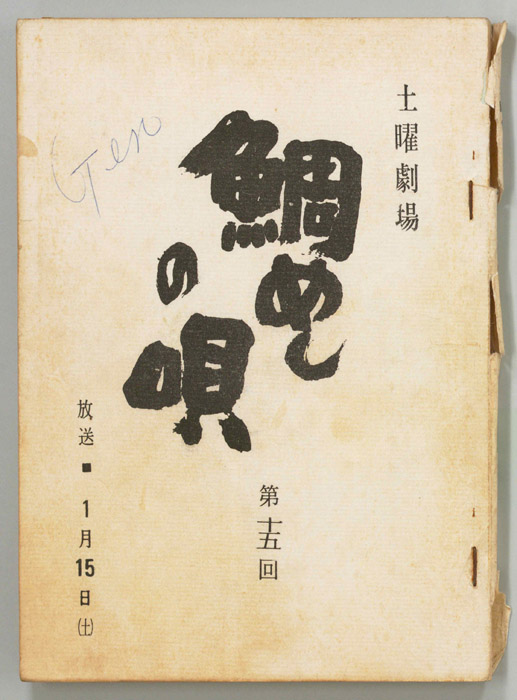 土曜劇場
鯛めし
の唄
第十五回
放送■1月15日(土)
Gen